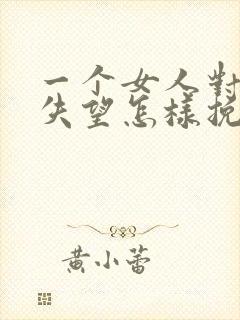 一个女人對
失望怎樣挽
黄小蕾